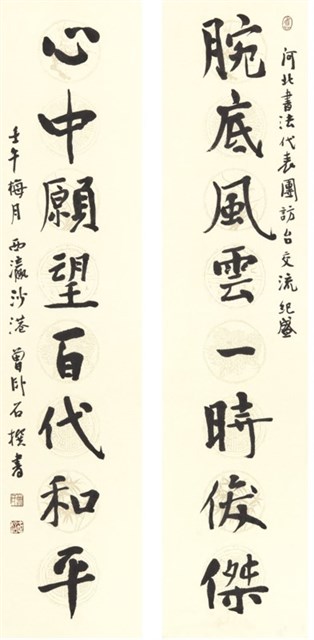 河北書法代表團訪台交流紀盛
腕底風雲一時俊傑
心中願望百代和平
壬午梅月西瀛沙港曾臥石撰書